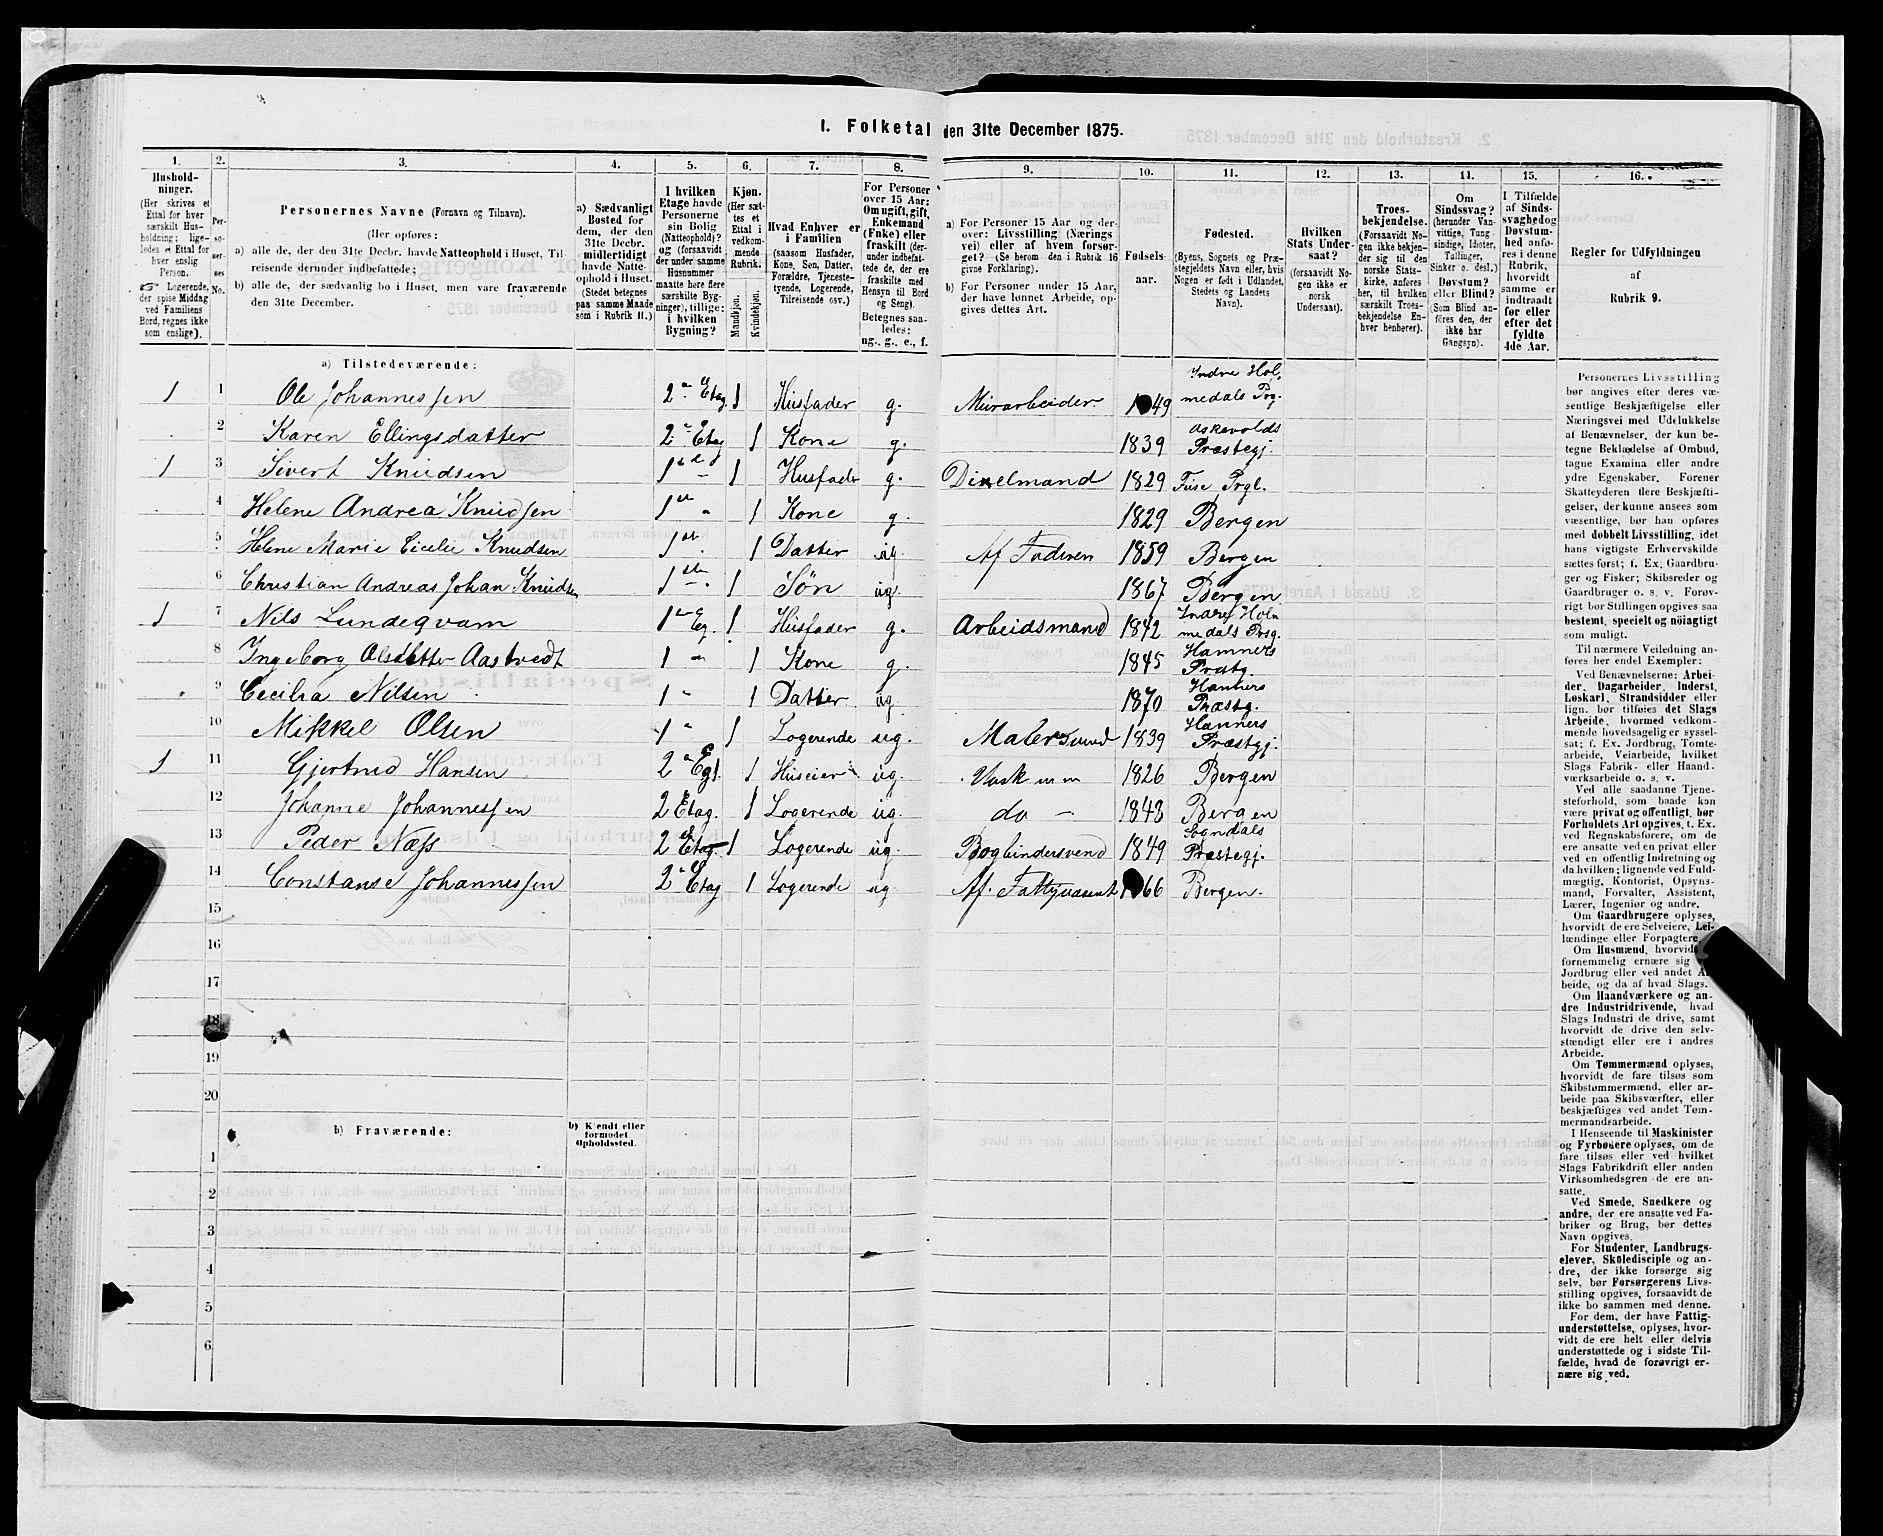 1. Folketal den 31te December 1875.
1. 2. 3. 4. 5. 6. 7. 8. 9. 10. 11. 12. 13. 14. 15. 16.
Hushold-
ninger.
(Her skrives et
Ettal for hver
særskilt Hus-
holdning; lige-
ledes et Ettal for
hver enslig
Person.
Logerende,
der spise Middag
ved Familiens
Bord, regnes ikke
som enslige).
Per-
so-
ner-
nes
No.
Personernes Navne (Fornavn og Tilnavn).
(Her opføres:
a) alle de, der den 31te Decbr. havde Natteophold i Huset, Til-
reisende derunder indbefattede;
b) alle de, der sædvanlig bo i Huset, men vare fraværende
den 31te December.
a) Sædvanligt
Bosted for
dem, der den
31te Decbr.
midlertidigt
havde Natte-
ophold i Huset.
(Stedet betegnes
paa samme Maade
som i Rubrik 11.)
I hvilken
Etage havde
Personerne
sin Bolig
(Natteophold)?
og (forsaavidt
der under samme
Husnummer
maatte høre flere
særskilte Byg-
ninger), tillige:
i hvilken
Bygning?
Kjøn.
(Her sæt-
tes et
Ettal i
vedkom-
mende
Rubrik.
Mandkjøn.
Kvindekjøn.
Hvad Enhver er
i Familien
(saasom Husfader,
Kone, Søn, Datter,
Forældre, Tjeneste-
tyende, Logerende,
Tilreisende osv.)
For Personer
over 15 Aar:
Om ugift, gift,
Enkemand
(Enke) eller
fraskilt (der-
under indbefat-
tede de, der ere
fraskilte med
Hensyn til Bord
og Seng).
Betegnes saa-
ledes:
ug., g., e., f.
a) For Personer 15 Aar og der-
over: Livsstilling (Nærings
vei) eller af hvem forsør-
get? (Se herom den i Rubrik 16
givne Forklaring).
b) For Personer under 15 Aar,
der have lønnet Arbeide, op-
gives dettes Art.
Fødsels-
aar.
Fødested.
(Byens, Sognets og Præ-
stegjeldets Navn eller, hvis
Nogen er født i Udlandet,
Stedets og Landets
Navn).
Hvilken
Stats Under-
saat?
(forsaavidt No-
gen ikke er
norsk
Undersaat).
Troes-
bekjendelse.
(Forsaavidt No-
gen ikke bekjen-
der sig til den
norske Stats-
kirke, anføres
her, til hvilken
særskilt Troes-
bekjendelse En-
hver henhører).
Om
Sindssvag?
(herunder Van-
vittige, Tung
sindige, Idioter,
Tullinger,
Sinker o. desl.)
Døvstum?
eller Blind?
(Som Blind an-
føres den, der
ikke har
Gangsyn).
I Tilfælde
af Sinds-
svaghed og
Døvstum-
hed anfø-
res i denne
Rubrik,
hvorvidt
samme er
indtraadt
før eller
efter det
fyldte
4de Aar.
Regler for Udfyldningen
af
Rubrik 9.
a) Tilstedeværende:
1 1 Ole Johannessen 2 Etag 1 Husfader g. Murarbeider 49 Indre Hol-
medals Prg.
2 Karen Ellingsdatter 2 Etag 1 Kone g. 1839 Askevolds
Præstegj.
1 3 Sivert Knudsen 1 1 Husfader g. 1829 Fuse Prgl.
4 Helene Andrea Knudsen 1 " 1 Kone g. 1829 Bergen
5 Helene Marie Cicelie Knudsen 1 1 Datter ug. Af Faderen 1859 Bergen
6 Christian Andreas Johan Knudsen 1 1 Søn ug. 1867 Bergen
1 7 Nils Lundeqvam 1 Eg. 1 Husfader g. Arbeidsmand 1842 Indre Hol
medals Prsg.
8 Ingeborg Olsdatter Aastvedt 1 " 1 Kone g. 1845 Hamners
Præstg.
9 Cecilia Nilsen 1 " 1 Datter ug. 1870 Hamners
Præstg.
10 Mikkel Olsen 1 " 1 Logerende ug. 1839 Hamners
Præstgj.
1 11 Gjertrud Hansen 2 Etg. 1 Huseier ug. 1826 Bergen
12 Johanne Johannessen 2 Etag. 1 Logerende ug. do - 1848 Bergen
13 Peder Næss 2 Etag. 1 Logerende ug. Bogbindersvend 1849 Sogndals
Præstegj.
14 Constanse Johannessen 2 Etag 1 Logerende ug Af. Fattigvæsenet 66 Bergen.
15
16
17
18
19
20
b) Fraværende:
b) Kjendt eller
formodet
Opholdssted.
1
2
3
4
5
6
Personernes Livsstilling
bør angives efter deres væ-
sentlige Beskjæftigelse eller
Næringsvei med Udelukkelse
af Benævnelser, der kun be-
tegne Beklædelse af Ombud,
tagne Examina eller andre
ydre Egenskaber. Forener
Skatteyderen flere Beskjæfti-
gelser, der kunne ansees som
væsentlige, bør han opføres
med dobbelt Livsstilling, idet
hans vigtigste Erhvervskilde
sættes først; f. Ex. Gaardbru-
ger og Fisker; Skibsreder og
Gaardbruger o. s. v. Forøv-
rigt bør Stillingen opgives saa
bestemt, specielt og nöiagtigt
som muligt.
Til nærmere Veiledning an-
føres her endel Exempler:
Ved Benævnelserne: Arbei-
der, Dagarbeider, Inderst,
Løskarl, Strandsidder eller
lign. bør tilføies det Slags
Arbeide, hvormed vedkom-
mende hovedsagelig er syssel-
sat; f. Ex. Jordbrug, Tomte-
arbeide, Veiarbeide, hvilket
Slags Fabrik- eller Haand-
værksarbeide o. s. v.
Ved alle saadanne Tjene-
steforhold, som baade kan
være privat og offentligt, bør
Forholdets Art opgives, f. Ex.
ved Regnskabsførere, om de
ere ansatte ved en privat eller
ved en offentlig Indretning og
da hvilken; lignende ved Fuld-
mægtig, Kontorist, Opsyns-
mand, Forvalter, Assistent,
Lærer, Ingeniør og andre.
Om Gaardbrugere oplyses,
hvorvidt de ere Selveiere, Lei-
lændinge eller Forpagtere.
Om Husmænd, hvorvidt
fornemmelig ernære sig
Jordbrug eller ved andet Ar-
beide, og da af hvad Slags.
Om Haandværkere og an-
dre Industridrivende, hvad
Slags Industri de drive, samt
hvorvidt de drive den selv-
stændigt eller ere i andres
Arbeide.
Om Tømmermænd oplyses,
hvorvidt de fare tilsøs som
Skibstømmermænd, eller ar-
beide paa Skibsværfter, eller
beskjæftiges ved andet Tøm-
mermandsarbeide.
I Henseende til Maskinister
og Fyrbødere oplyses, om de
fare tilsøs eller ved hvilket
Slags Fabrikdrift eller anden
Virksomhedsgren de ere an-
satte.
Ved Smede, Snedkere og
andre, der ere ansatte ved Fa-
briker og Brug, bør dettes
Navn opgives.
For Studenter, Landbrugs-
elever, Skoledisciple og an-
dre, der ikke forsørge sig
selv, bør Forsørgerens Livs-
stilling opgives, forsaavidt de
ikke bo sammen med denne.
For dem, der have Fattig-
understøttelse, oplyses, hvor-
vidt de ere helt eller delvis
understøttede og i sidste Til-
fælde, hvad de forøvrigt er-
nære sig ved.